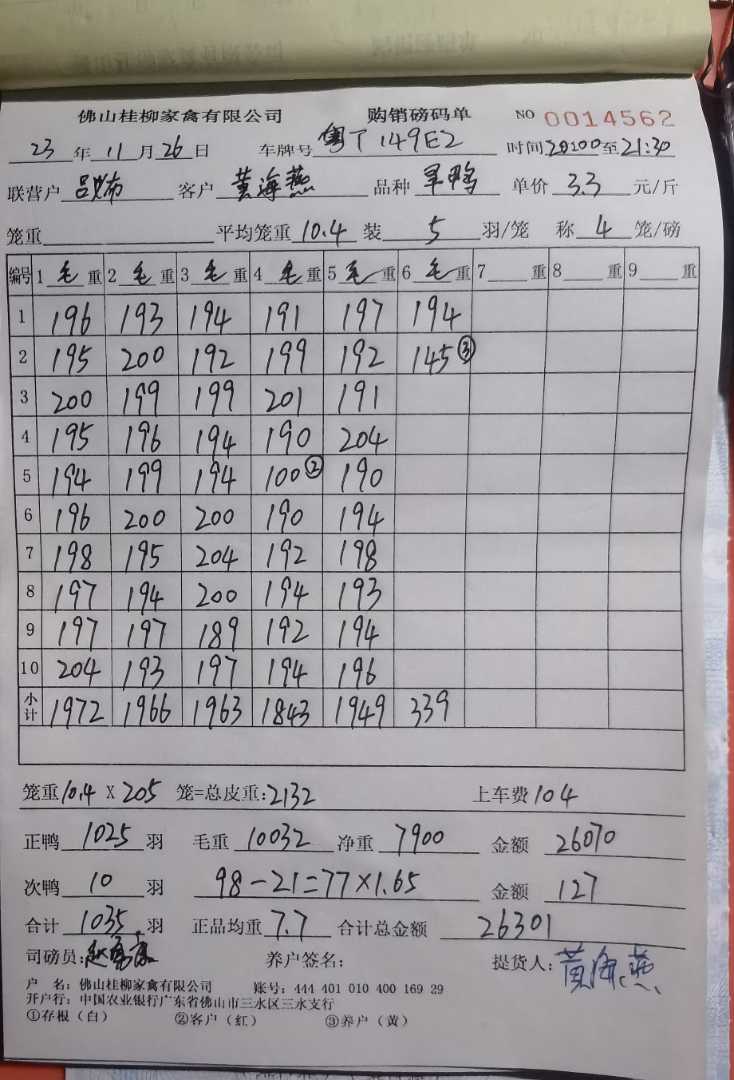 佛山桂柳家禽有限公司 购销磅码单 NO 0014562
23 年 11 月 26 日 车牌号 粤T149E2 时间 20:00 至 21:30
联营户 客户 黄海燕 品种 旱鸭 单价 3.3 元/斤
笼重 平均笼重 10.4 装 5 羽/笼 称 4 笼/磅
编号 1 毛 重 2 毛 重 3 毛 重 4 毛 重 5 毛 重 6 毛 重 7 重 8 重 9 重
1 196 193 194 191 197 194
2 195 200 192 199 192 145③
3 200 199 199 201 191
4 195 196 194 190 204
5 194 199 194 100② 190
6 196 200 200 190 194
7 198 195 204 192 198
8 197 194 200 194 193
9 197 197 189 192 194
10 204 193 197 194 196
小计 1972 1966 1963 1843 1949 339
笼重 10.4 X 205 笼=总皮重: 2132 上车费 104
正鸭 1025 羽 毛重 10032 净重 7900 金额 26070
次鸭 10 羽 98-21=77×1.65 金额 127
合计 1035 羽 正品均重 7.7 合计总金额 26301
司磅员: 养户签名: 提货人: 黄海燕
户 名: 佛山桂柳家禽有限公司 账号: 444 401 010 400 169 29
开户行: 中国农业银行广东省佛山市三水区三水支行
①存根(白) ②客户(红) ③养户(黄)